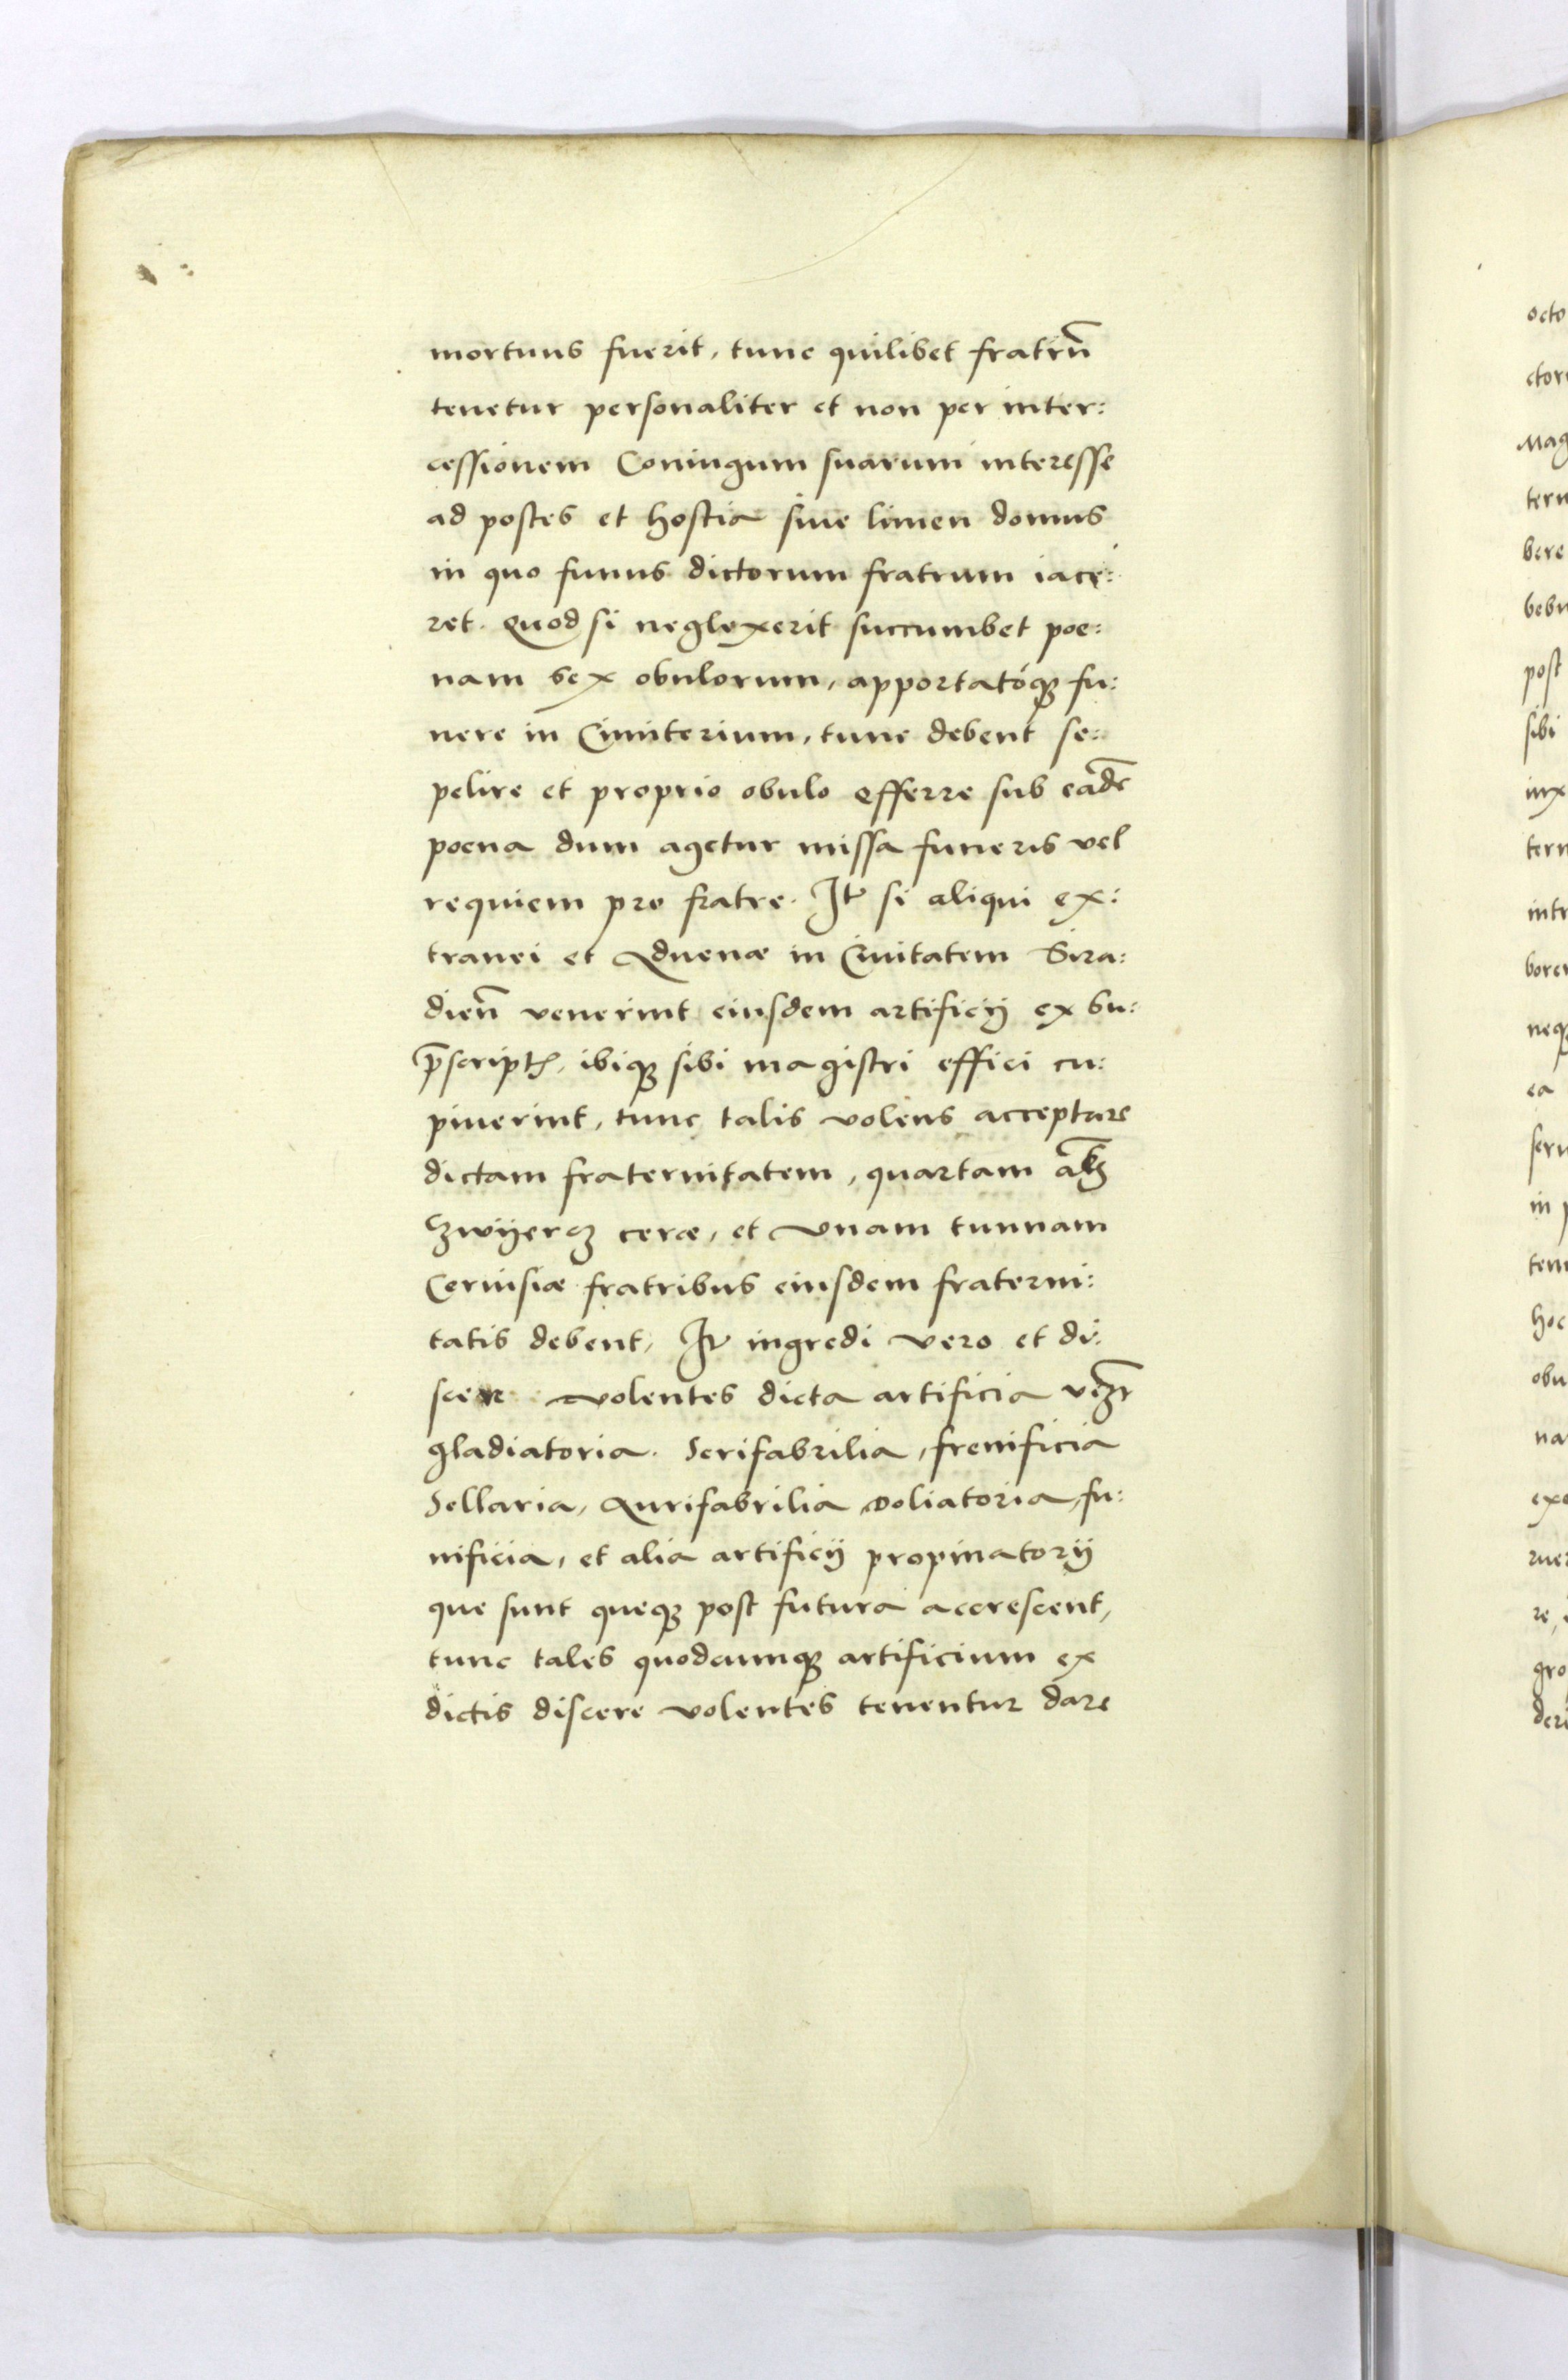 mortuus fuerit, tunc quilibet fratrũ
tenetur personaliter et non per inter:
cessionem Coniugum suarum interesse
ad postes et hostia siue limen domus
in quo funus dictorum fratrum iace:
ret. Quod si neglexerit succumbet poe:
nam sex obulorum, apportatóq3 fu:
nere in Cimiterium, tunc debent se:
pelire et proprio obulo efferre sub eadē
poena dum agetur missa funeris vel
requiem pro fratre. It si aliqui ex:
tranei et Aduenæ in Ciuitatem Sira:
dien̄ venerint eiusdem artificij ex su:
p̄script, ibiq3 sibi magistri effici cu:
piuerint, tunc talis volens acceptare
dictam fraternitatem, quartam
ceræ, et vnam tunnam
Ceruisiæ fratribus eiusdem fraterni:
tatis debent, It ingredi vero et di:
scere volentes dicta artificia
gladiatoria. Serifabrilia, frenificia
Sellaria, Aurifabrilia, doliatoria, fu:
nificia, et alia artificij propinatorij
que sunt queq3 post futura accrescent,
tunc tales quodcumq3 artificium ex
dictis discere volentes tenentur dare
octo
post
sibi
ea